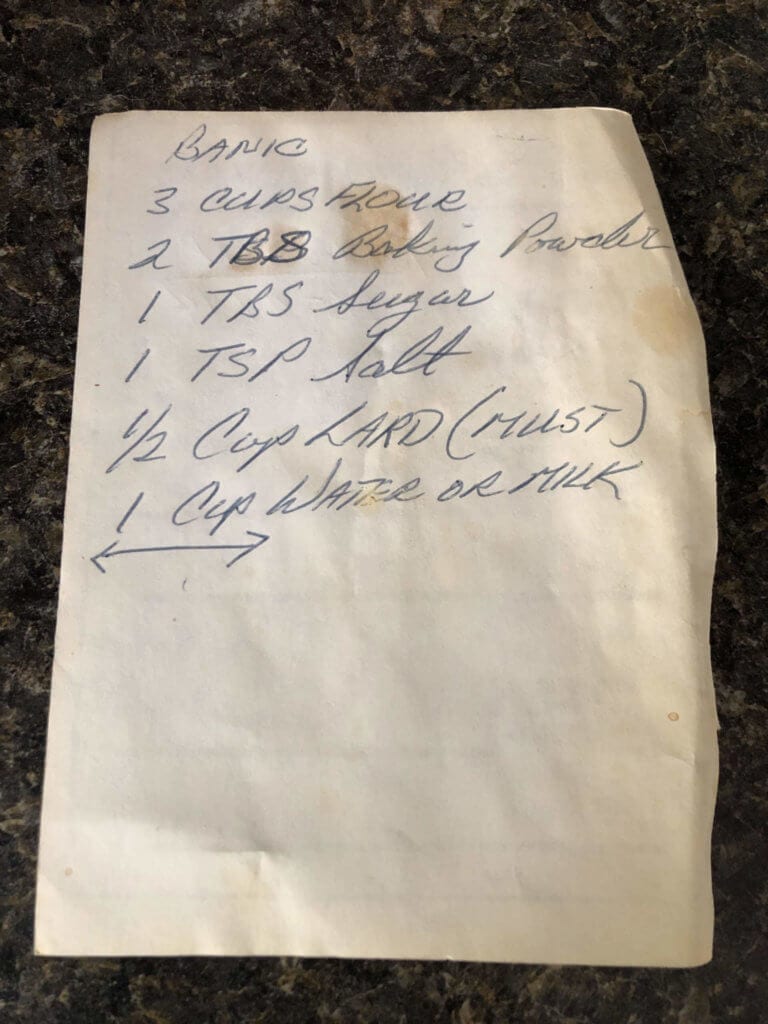 BANIC
3 CUPS FLOUR
2 TBS Baking Powder
1 TBS Sugar
1 TSP Salt
1/2 Cup LARD (MUST)
1 Cup WATER OR MILK